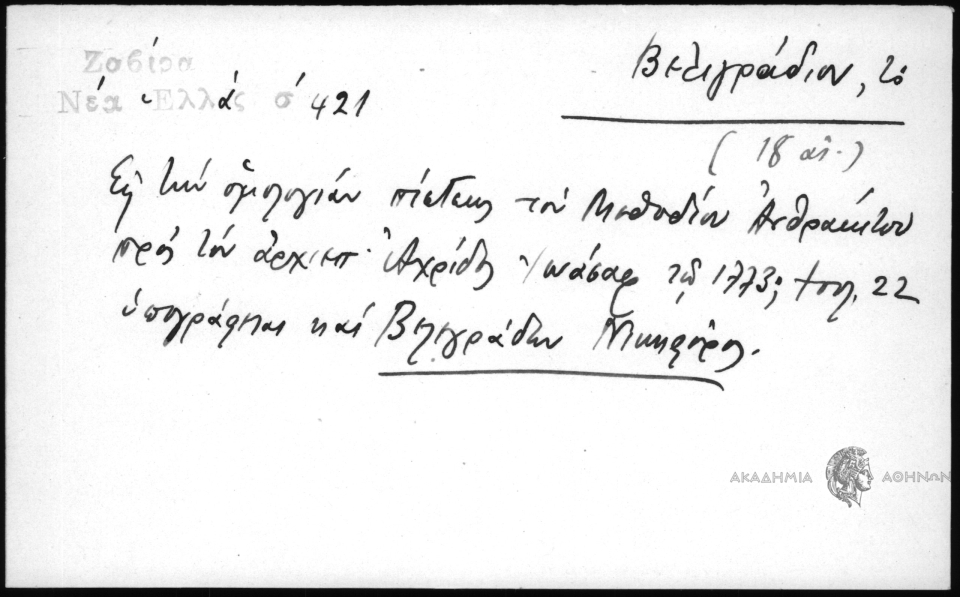 Ζαβίρα
Νέα Ἑλλάς σ 421
Βελιγράδιον, τὸ
(18 αἰ.)
Εἰς τὴν ὁμολογίαν πίστεως τοῦ Μεθοδίου Ἀνθρακίτου
πρὸς τὸν ἀρχιεπ. Ἀχρίδος Ἰωάσαφ τῷ 1773; φυλ. 22
ὑπογράφεται καὶ Βελιγράδων Νικηφόρος.
ΑΚΑΔΗΜΙΑ ΑΘΗΝΩΝ